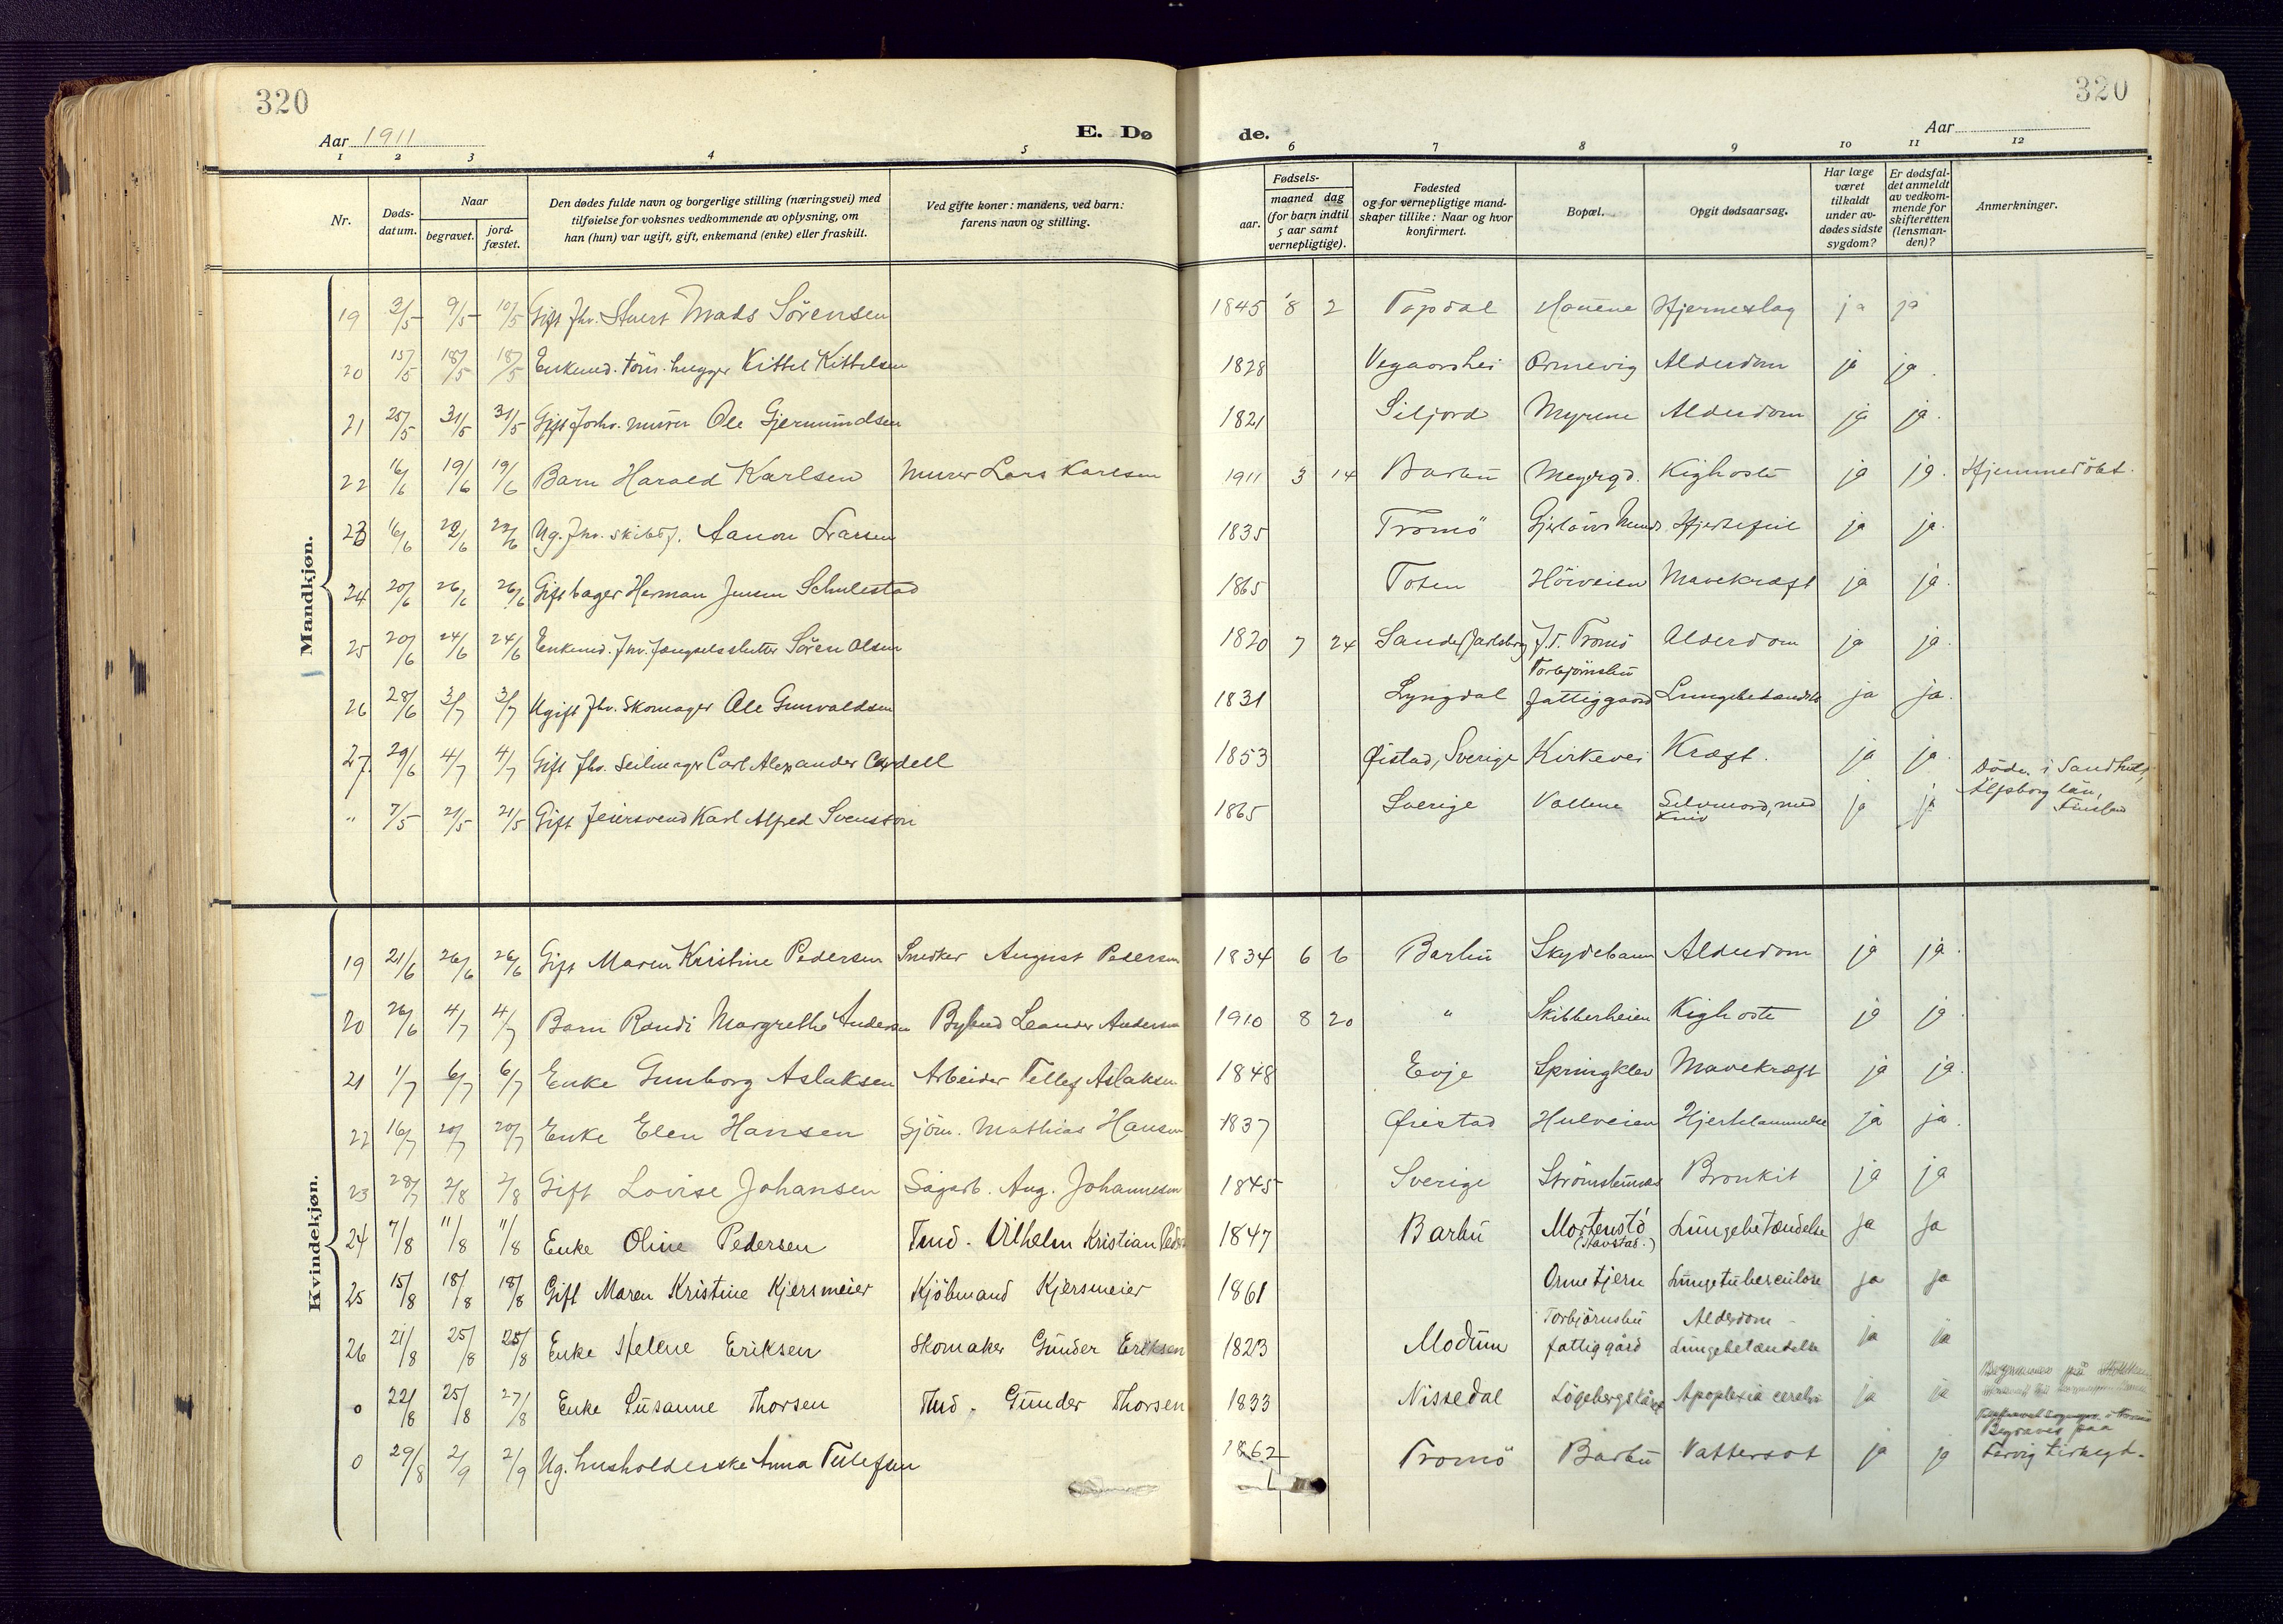 320
320
Aar 1911
E. Dø
de.
Aar
1 2 3 4 5 6 7 8 9 10 11 12
Nr.
Døds-
datum.
Naar
begravet.
jord-
fæstet.
Den dødes fulde navn og borgerlige stilling (næringsvei) med
tilføielse for voksnes vedkommende av oplysning, om
han (hun) var ugift, gift, enkemand (enke) eller fraskilt.
Ved gifte koner: mandens, ved barn:
farens navn og stilling.
Fødsels-
aar.
maaned dag
(for barn indtil
5 aar samt
vernepligtige).
Fødested
og for vernepligtige mand-
skaper tillike: Naar og hvor
konfirmert.
Bopæl.
Opgit dødsaarsag.
Har læge
været
tilkaldt
under av-
dødes sidste
sygdom?
Er dødsfal-
det anmeldt
av vedkom-
mende for
skifteretten
(lensman-
den)?
Anmerkninger.
Mandkjøn.
19 3/5 9/5 10/5 Gift fhv. Stuert Mads Sörensen 1845 8 2 Topdal Hjerneslag ja ja
20 15/5 18/5 18/5 Enkemd. töm. hugger Kittel Kittelsen 1828 Vegaarshei Ormevig Alderdom ja ja.
21 25/5 31/5 31/5 Gift Forhv. murer Ole Gjermundsen 1821 Siljord Myrene Alderdom ja ja.
22 16/6 19/6 19/6 Barn Harald Karlsen Murer Lars Karlsen 1911 3 14 Barbu Meyergd. Kighoste ja ja. Hjemmedöbt.
23 16/6 22/6 Ug. Fhv. skibsf. Aanon Larsen 1835 Tromö Hjertefeil ja ja.
24 20/6 26/6 26/6 Gift bager Herman Jensen Schulestad 1865 Toten Höiveien Mavekræft ja ja.
25 20/6 24/6 24/6 Enkemd. Fhv. fængselsslutter Sören Olsen 1820 7 24 Sande, Jarlsberg Tromö Alderdom ja ja.
26 28/6 3/7 3/7 Ugift fhv. Skomager Ole Gunvaldsen 1831 Lyngdal Torbjörnsbu fattiggaard ja ja.
27. 29/6 4/7 4/7 Gift fhv. Seilmager Carl Alexander Cardell 1853 Øistad, Sverige Kirkevei Kræft. ja ja.
" 7/5 21/5 21/5 Gift feiersvend Karl Alfred Svensson 1865 Sverige Vollene Selvmord, med kniv ja ja Döde i Sandhult, Älfsborg län,
Kvindekjøn.
19 21/6 26/6 26/6 Gift Maren Kristine Pedersen Snedker August Pedersen 1834 6 6 Barbu Skydebanen Alderdom ja ja.
20 26/6 4/7 4/7 Barn Randi Margrethe Andersen Bybud Leander Andersen 1910 8 20 " Skibberheien Kighoste ja ja
21 1/7 6/7 6/7 Enke Gunborg Aslaksen Arbeider Tellef Aslaksen 1848 Evje Springklev Mavekræft ja ja.
22 16/7 20/7 20/7 Enke Elen Hansen Sjöm. Mathias Hansen 1837 Øiestad Hulveien Hjertelammelse ja ja.
23 28/7 2/8 2/8 Gift Lovise Johansen Sagarb. Aug. Johannesen 1845 Sverige Bronkit ja ja
24 7/8 11/8 11/8 Enke Oline Pedersen Tmd. Vilhelm Kristian Peders 1847 Barbu Mortenstö (Stavstad.) Lungebetændelse ja ja
25 15/8 18/8 18/8 Gift Maren Kristine Kjersmeier Kjöbmand Kjersmeier 1861 Ormetjern Lungetuberculose ja ja
26 21/8 25/8 25/8 Enke Hellene Eriksen Skomaker Gunder Eriksen 1823 Modum Torbjörnsbu fattiggård Alderdom Lungebetændelse ja ja
0 22/8 25/8 27/8 Enke Susanne Thorsen Tmd. Gunder Thorsen 1833 Nissedal Apoplexia cerebri ja ja
0 29/8 2/9 2/9 Ug. husholderske Anna Tellefsen 1862 Tromö Barbu Vattersot ja ja Begraves paa Færvig kirkegd.